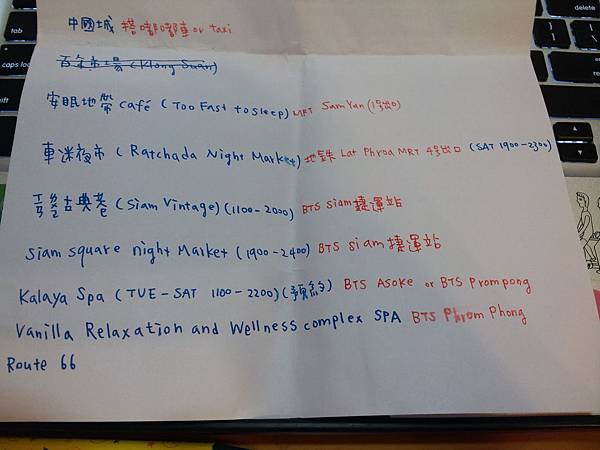 中國城 搭嘟嘟車 or taxi
百年市場 (Klong Suan)
安眠地帶 café (Too Fast to sleep) MRT Sam Yan (1號出口)
車迷夜市 (Ratchada Night Market) 地鐵 Lat Phroa MRT 4號出口 (SAT 1900-2300)
暹羅古典巷 (Siam Vintage) (1100-2000) BTS siam 捷運站
Siam square night Market (1900-2400) BTS siam 捷運站
Kalaya Spa (TUE-SAT 1100-2200) (預約) BTS Asoke or BTS Prompong
Vanilla Relaxation and Wellness complex SPA BTS Phrom Phong
Route 66
tab
caps lock
shift
delete
return